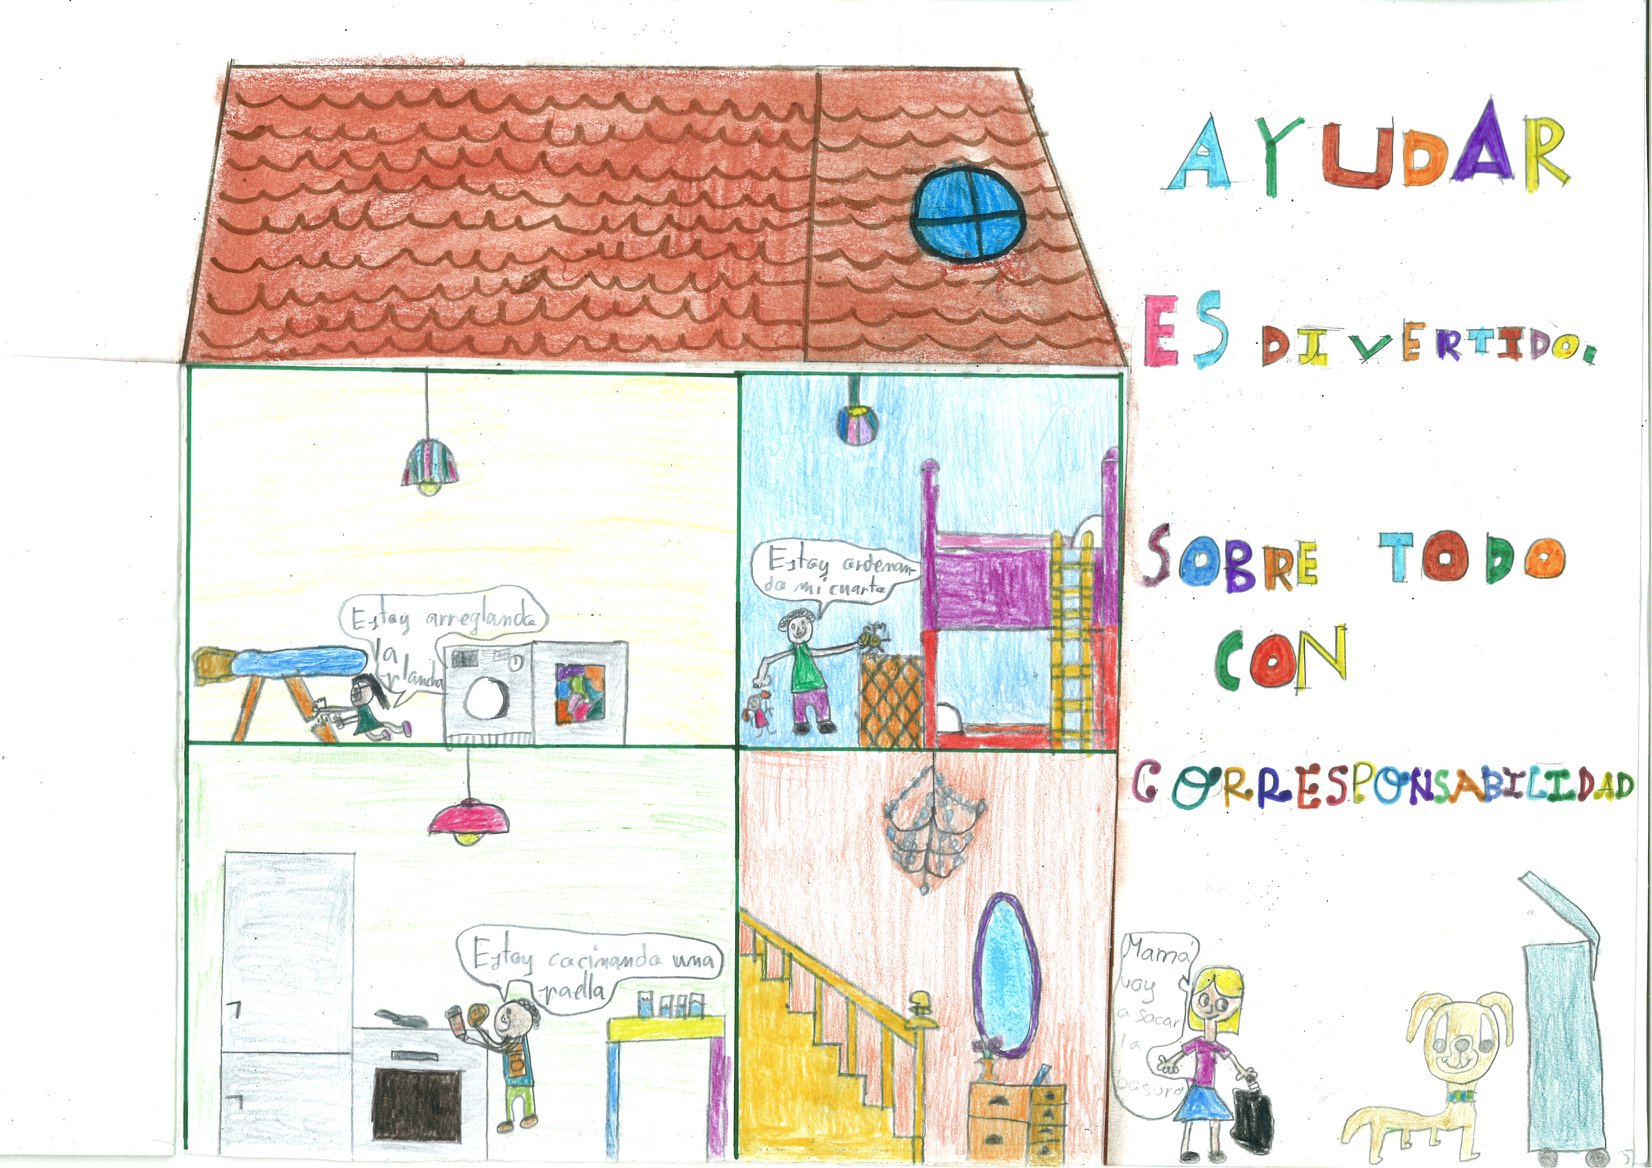 AYUDAR
ES DIVERTIDO.
SOBRE TODO
CON
CORRESPONSABILIDAD
Estoy arreglando
la
plancha
Estoy ordenan-
do mi cuarto
Estoy cocinando una
paella
Mamá
voy
a sacar
la
basura